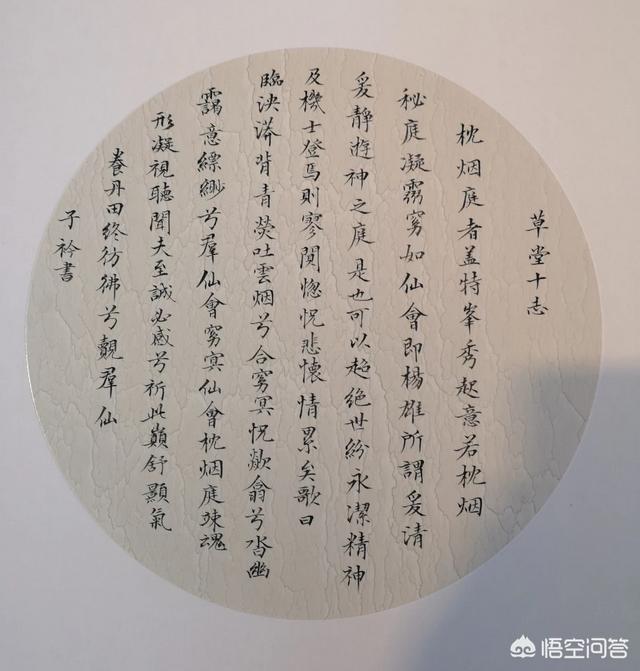 草堂十志
枕烟庭者盖特峯秀起意若枕烟
秘庭凝霧窈如仙會即楊雄所謂爰清
爰静遊神之庭是也可以超絕世紛永潔精神
及機士登焉則寥闃惚怳悲懷情累矣歌曰
臨泱漭背青熒吐雲烟兮合窈冥怳欻翕兮沓幽
靄意縹緲兮羣仙會窈冥仙會枕烟庭竦魂
形凝視聽聞夫至誠必感兮祈此巔舒顥氣
養丹田終彷彿兮覿羣仙
子衿書
悟空问答